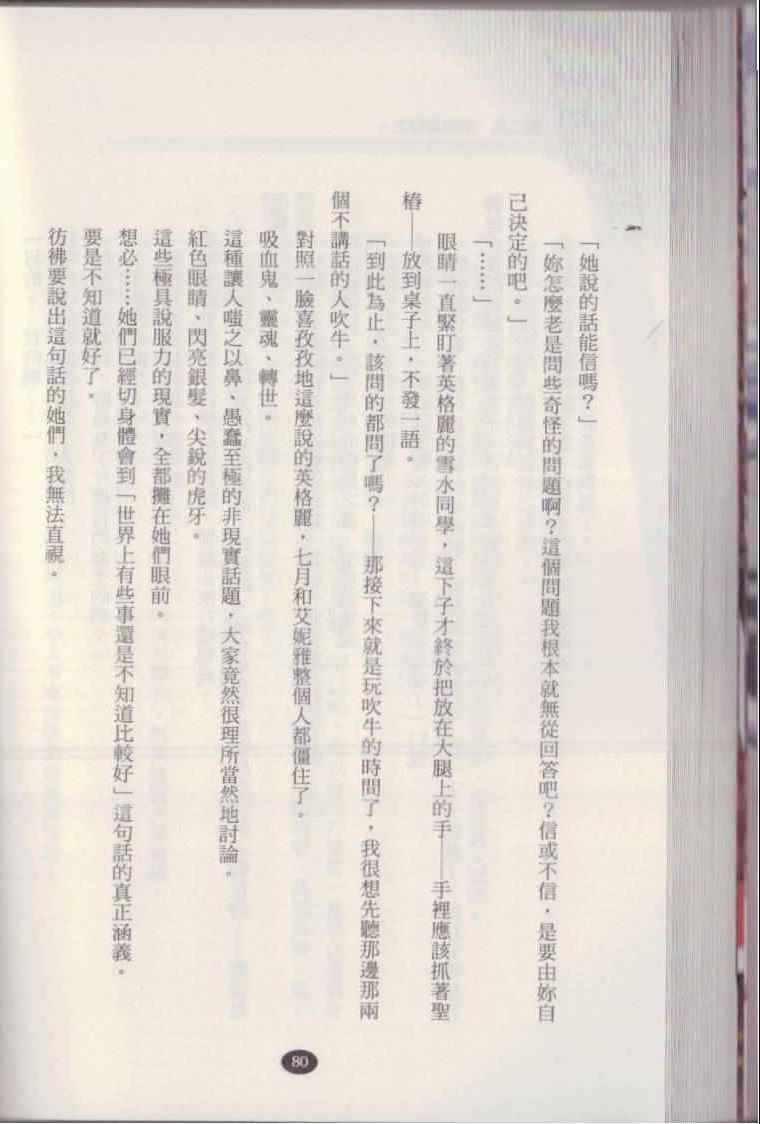 「她說的話能信嗎？」
「妳怎麼老是問些奇怪的問題啊？這個問題我根本就無從回答吧？信或不信，是要由妳自
己決定的吧。」
「……」
眼睛一直緊盯著英格麗的雪水同學，這下子才終於把放在大腿上的手——手裡應該抓著聖
樁——放到桌子上，不發一語。
「到此為止，該問的都問了嗎？——那接下來就是玩吹牛的時間了，我很想先聽那邊那兩
個不講話的人吹牛。」
對照一臉喜孜孜地這麼說的英格麗，七月和艾妮雅整個人都僵住了。
吸血鬼、靈魂、轉世。
這種讓人嗤之以鼻、愚蠢至極的非現實話題，大家竟然很理所當然地討論。
紅色眼睛、閃亮銀髮、尖銳的虎牙。
這些極具說服力的現實，全都攤在她們眼前。
想必……她們已經切身體會到「世界上有些事還是不知道比較好」這句話的真正涵義。
要是不知道就好了。
彷彿要說出這句話的她們，我無法直視。
80